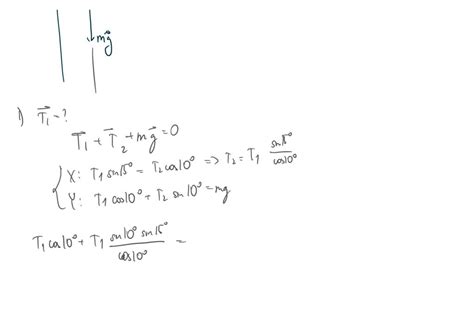 mg⃗
1) T⃗₁ - ?
T⃗₁ + T⃗₂ + mg⃗ = 0
X: T₁ sin15° = T₂ cos10° => T₂ = T₁ sin15°/cos10°
Y: T₁ cos10° + T₂ sin10° = mg
T₁ cos10° + T₁ (sin10° sin15°)/cos10° =